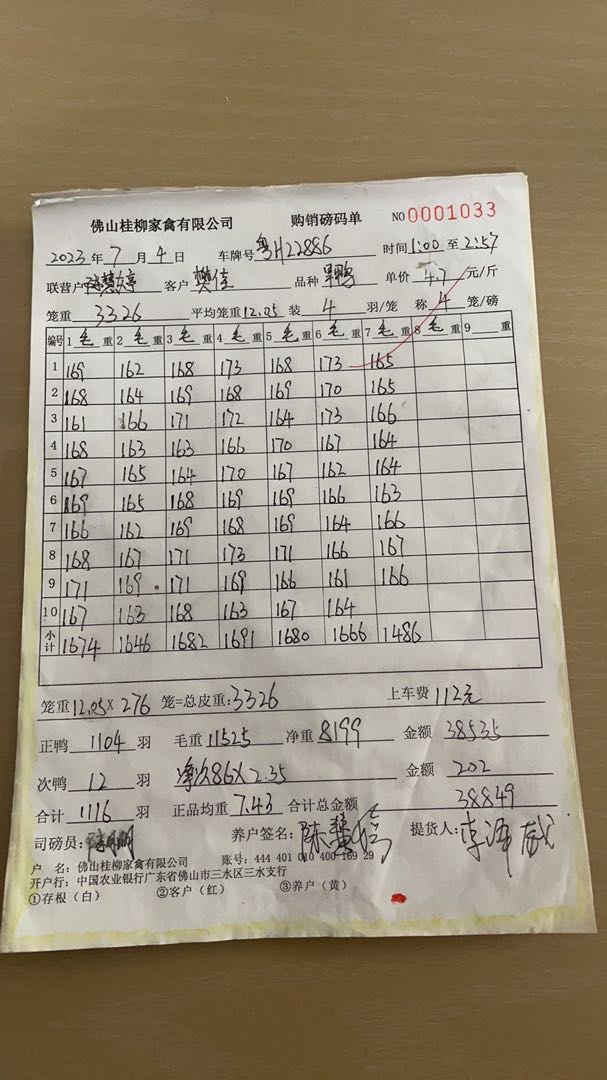 佛山桂柳家禽有限公司 购销磅码单 NO 0001033
2023年 7月 4日 车牌号 粤H22886 时间 1:00 至 2:57
联营户 陈慧婷 客户 樊佳 品种 单价 4.7 元/斤
笼重 3326 平均笼重 12.05 装 4 羽/笼 称 4 笼/磅
编号 1 毛 重 2 毛 重 3 毛 重 4 毛 重 5 毛 重 6 毛 重 7 毛 重 8 毛 重 9 重
1 169 162 168 173 168 173 165
2 168 164 169 168 169 170 165
3 161 166 171 172 164 173 166
4 168 163 163 166 170 167 164
5 167 165 164 170 167 162 164
6 169 165 168 169 169 166 163
7 166 162 169 168 169 164 166
8 168 167 171 173 171 166 167
9 171 169 171 169 166 161 166
10 167 163 168 163 167 164
小计 1674 1646 1682 1691 1680 1666 1486
笼重 12.05 × 276 笼=总皮重: 3326 上车费 112元
正鸭 1104 羽 毛重 11525 净重 8199 金额 38535
次鸭 12 羽 净次86×2.35 金额 202
合计 1116 羽 正品均重 7.43 合计总金额 38849
司磅员: 养户签名: 提货人:
户 名: 佛山桂柳家禽有限公司 账号: 444 401 010 400 169 29
开户行: 中国农业银行广东省佛山市三水区三水支行
①存根（白） ②客户（红） ③养户（黄）